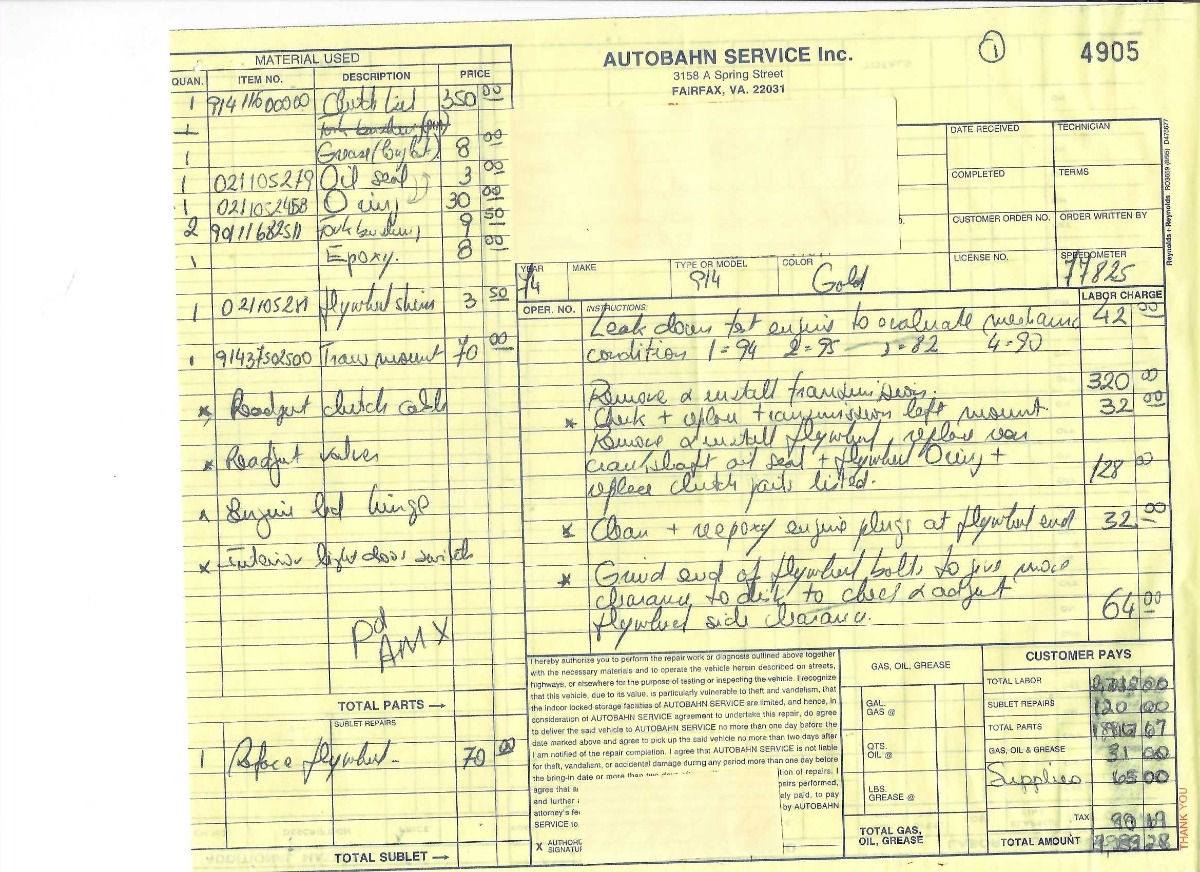 AUTOBAHN SERVICE Inc.
3158 A Spring Street
FAIRFAX, VA. 22031
1
4905
MATERIAL USED
QUAN. ITEM NO. DESCRIPTION PRICE
1 Clutch 350 00
1
1 Grease 8 00
1 021105279 Oil seal 3 00
1 0211052458 O ring 30 00
2 9 50
1 Epoxy. 8 00
1 flywheel shims 3 50
1 91437502500 Trans mount 70 00
* Readjust clutch cable
* Readjust valves
* Engine lid hinge
* Interior light door switch
Pd
AMX
TOTAL PARTS →
SUBLET REPAIRS
1 Reface flywheel 70 00
TOTAL SUBLET →
DATE RECEIVED TECHNICIAN
COMPLETED TERMS
CUSTOMER ORDER NO. ORDER WRITTEN BY
LICENSE NO. SPEEDOMETER
77825
YEAR MAKE TYPE OR MODEL COLOR
74 914 Gold
OPER. NO. INSTRUCTIONS: LABOR CHARGE
Leak down test engine to evaluate 42 00
condition 1=94 2=95 3=82 4=90
Remove & install transmission. 320 00
* Check + replace transmission left mount 32 00
Remove & install flywheel, replace rear
crankshaft oil seal + flywheel O ring +
replace clutch parts listed. 128 00
* Clean + reepoxy engine plugs at flywheel end 32 00
* Grind end of flywheel bolts to give more
clearance to disk to check & adjust
flywheel side clearance. 64 00
I hereby authorize you to perform the repair work or diagnosis outlined above together
with the necessary materials and to operate the vehicle herein described on streets,
highways, or elsewhere for the purpose of testing or inspecting the vehicle. I recognize
that this vehicle, due to its value, is particularly vulnerable to theft and vandalism, that
the indoor locked storage facilities of AUTOBAHN SERVICE are limited, and hence, in
consideration of AUTOBAHN SERVICE agreement to undertake this repair, do agree
to deliver the said vehicle to AUTOBAHN SERVICE no more than one day before the
date marked above and agree to pick up the said vehicle no more than two days after
I am notified of the repair completion. I agree that AUTOBAHN SERVICE is not liable
for theft, vandalism, or accidental damage during any period more than one day before
the bring-in date or more than
agree that
and further
attorney's
SERVICE to
by AUTOBAHN
X
GAS, OIL, GREASE
GAL.
GAS @
QTS.
OIL @
LBS.
GREASE @
TOTAL GAS,
OIL, GREASE
CUSTOMER PAYS
TOTAL LABOR
SUBLET REPAIRS 120 00
TOTAL PARTS
GAS, OIL & GREASE 31 00
Supplies 65 00
TAX
TOTAL AMOUNT
THANK YOU